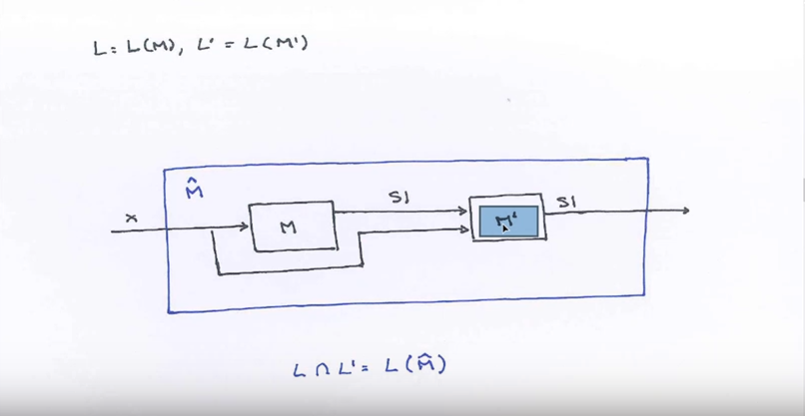 L = L(M), L' = L(M')
M̂
x
M
SI
M'
SI
L ∩ L' = L(M̂)